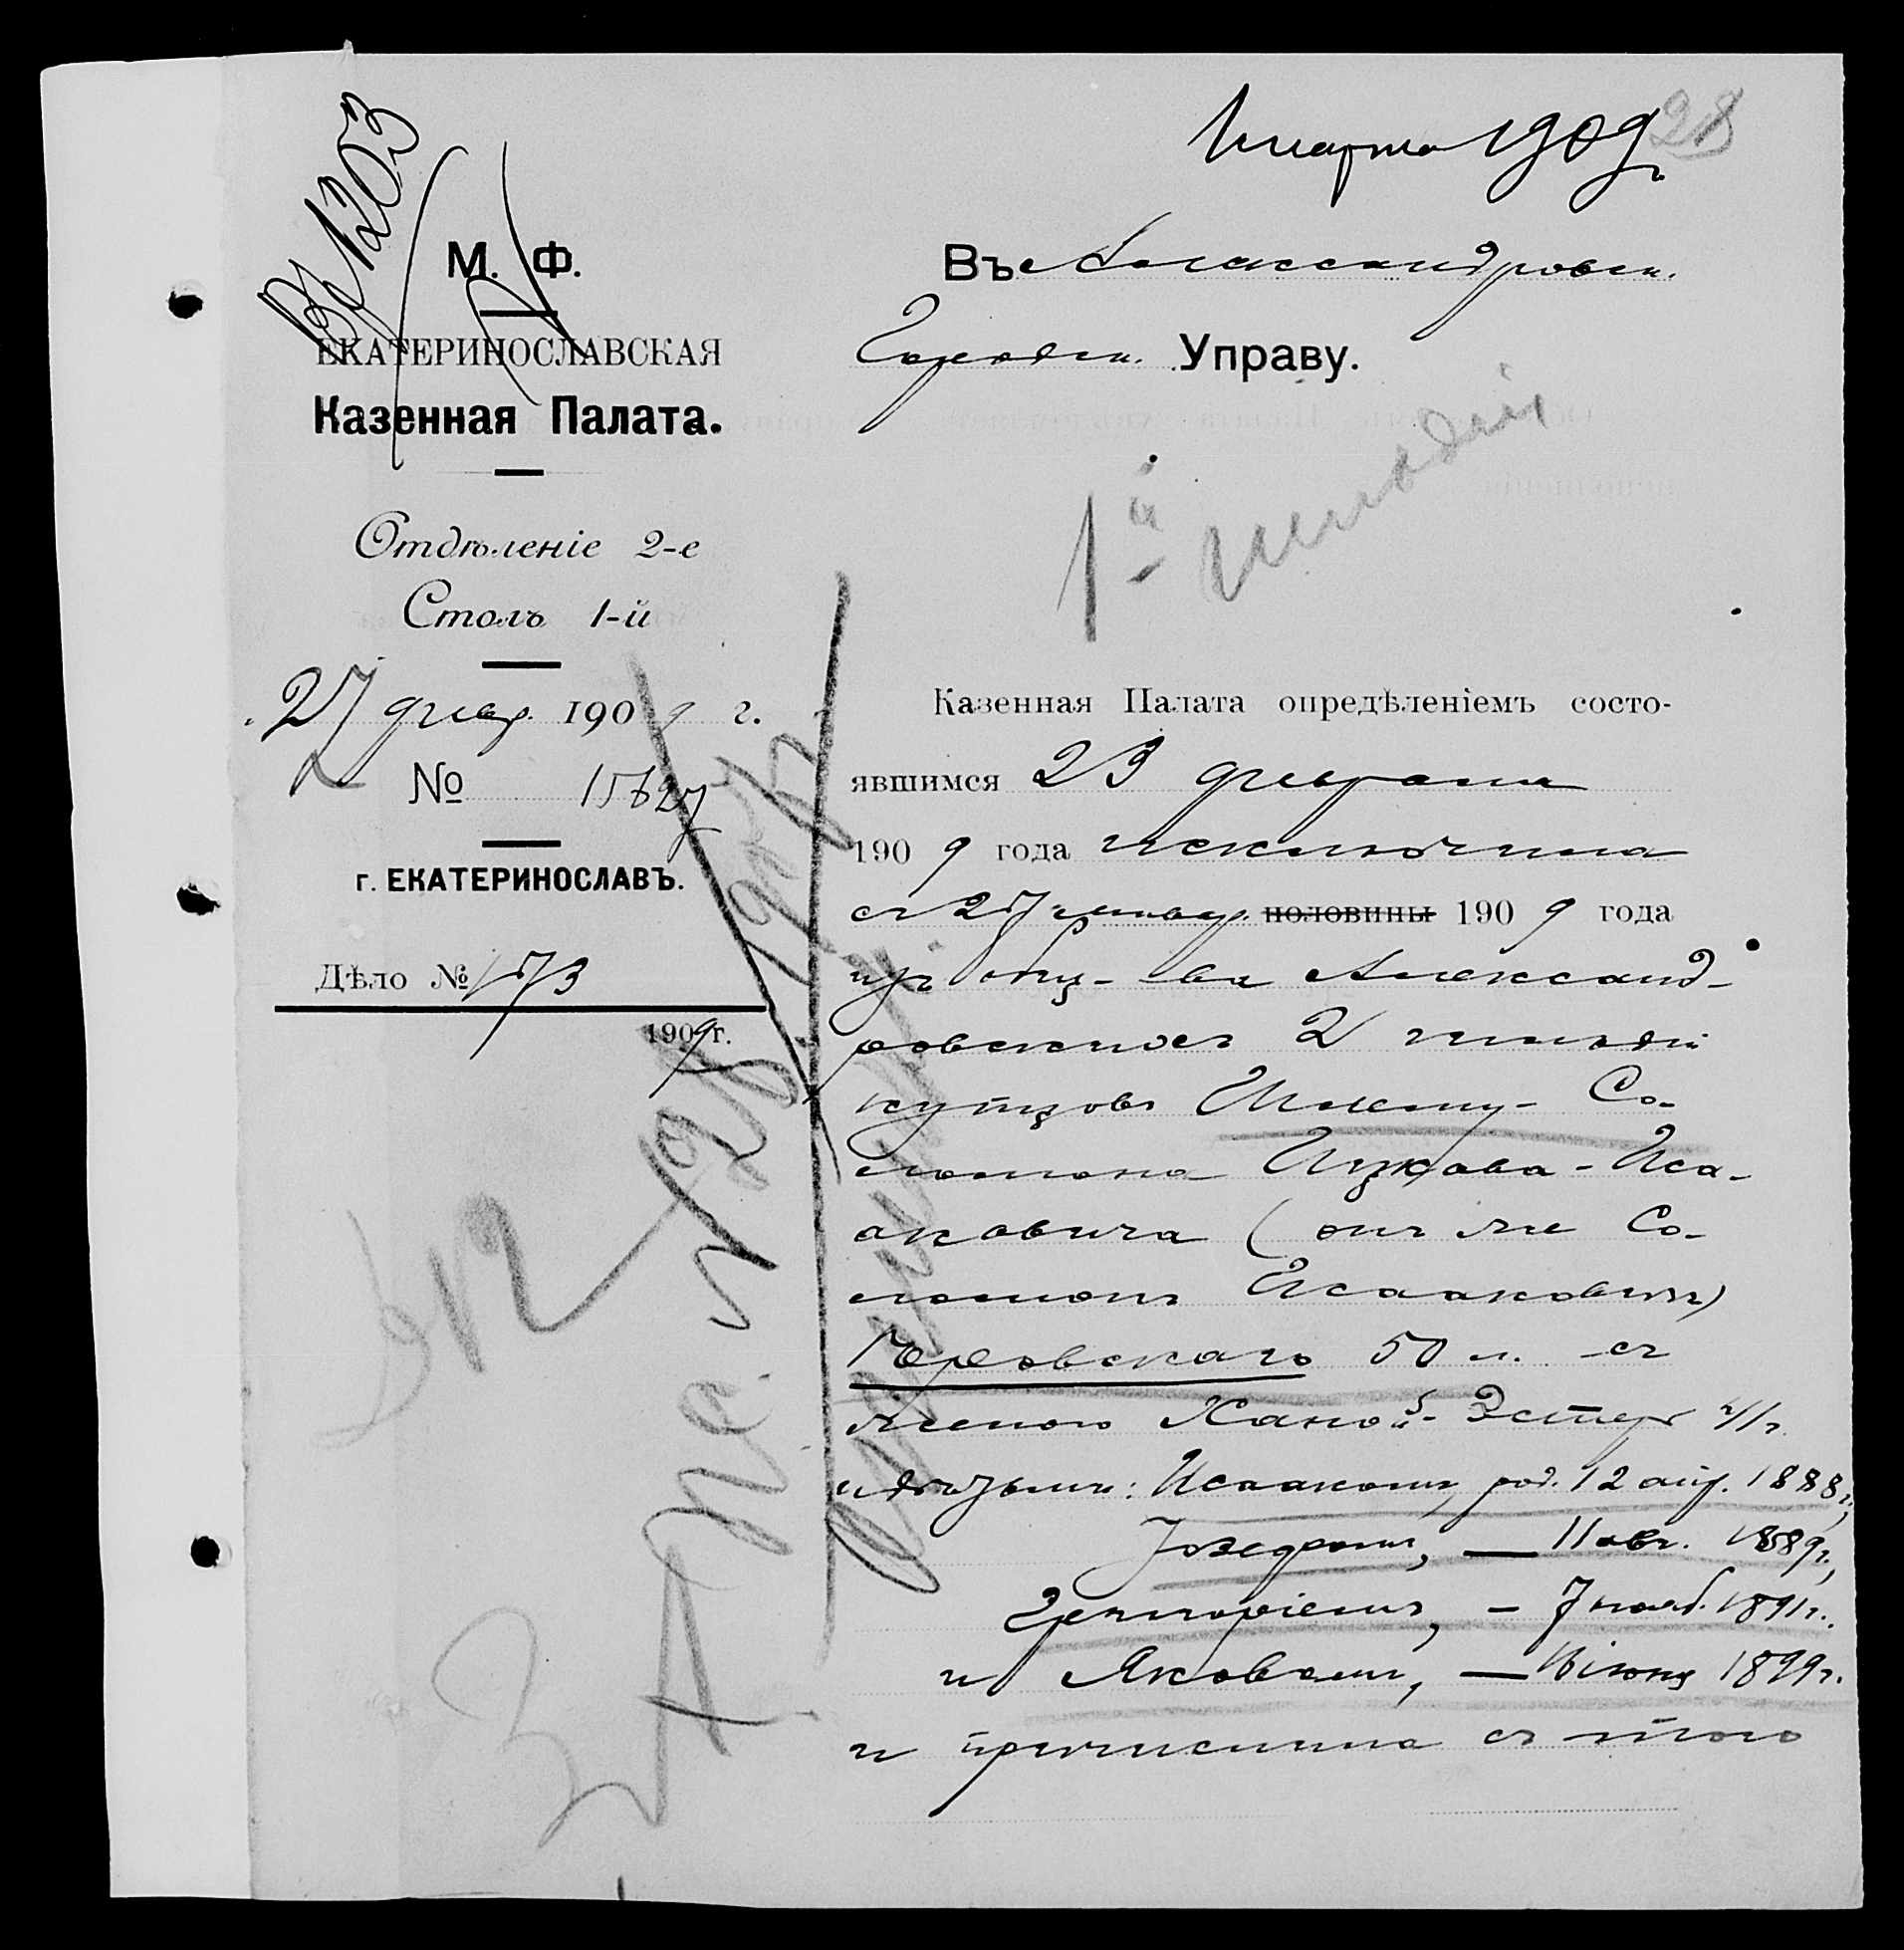 28
1 марта 1909 г.
Вх 1203
М. Ф.
ЕКАТЕРИНОСЛАВСКАЯ
Казенная Палата.
Отдѣленіе 2-е
Столъ 1-й
27 февр. 1909 г.
№ 15627
г. ЕКАТЕРИНОСЛАВЪ.
Дѣло № 173
1909 г.
Въ Александровск.
Городск. Управу.
1й гильдіи
Казенная Палата опредѣленіемъ состо-
явшимся 23 февраля
1909 года исключила
съ 27 января половины 1909 года
изъ общ-ва Александ-
ровскихъ 2 гильдіи
купцовъ Шлему-Со-
ломона Ицкова-Иса-
аковича (онъ же Со-
ломонъ Исааковичъ)
скаго 50 л. съ
женою Ханой-Эстеръ
и дѣтьми: Исаакомъ, род. 12 апр. 1888 г.,
Іозефомъ, — 11 авг. 1889 г.,
Григоріемъ, — 7 нояб. 1891 г.
и Яковомъ, — іюня 1899 г.
и причислила съ того